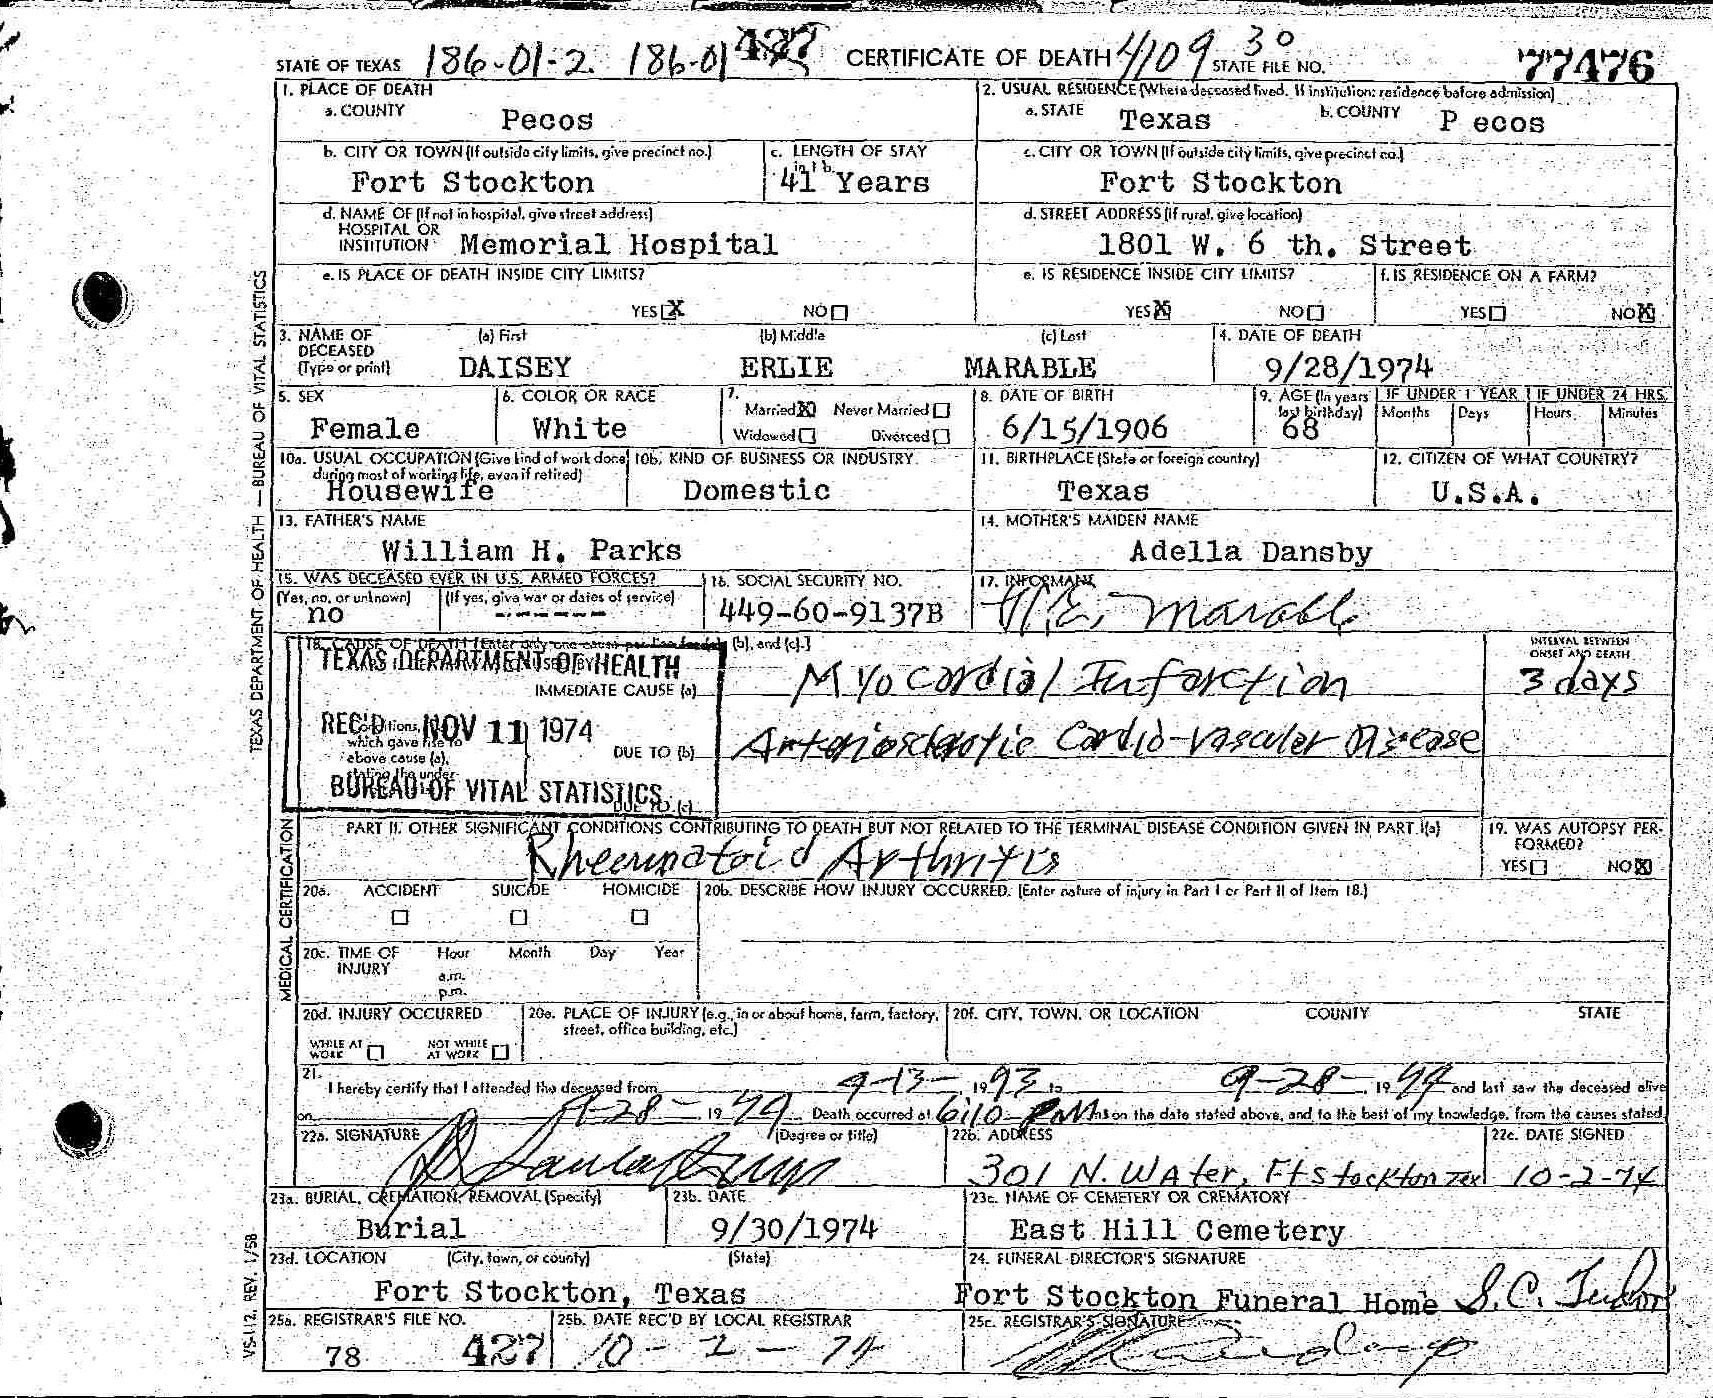 STATE OF TEXAS 186-01-2 186-01 427 CERTIFICATE OF DEATH 4109 30 STATE FILE NO. 77476
1. PLACE OF DEATH
a. COUNTY Pecos
2. USUAL RESIDENCE (Where deceased lived. If institution: residence before admission)
a. STATE Texas b. COUNTY P ecos
b. CITY OR TOWN (If outside city limits, give precinct no.) Fort Stockton
c. LENGTH OF STAY in 1b 41 Years
c. CITY OR TOWN (If outside city limits, give precinct no.) Fort Stockton
d. NAME OF (If not in hospital, give street address)
HOSPITAL OR
INSTITUTION Memorial Hospital
d. STREET ADDRESS (If rural, give location)
1801 W. 6 th. Street
e. IS PLACE OF DEATH INSIDE CITY LIMITS?
YES X NO
e. IS RESIDENCE INSIDE CITY LIMITS?
YES X NO
f. IS RESIDENCE ON A FARM?
YES NO X
3. NAME OF DECEASED (Type or print)
(a) First DAISEY (b) Middle ERLIE (c) Last MARABLE
4. DATE OF DEATH 9/28/1974
5. SEX Female
6. COLOR OR RACE White
7. Married X Never Married
Widowed Divorced
8. DATE OF BIRTH 6/15/1906
9. AGE (In years last birthday) 68
IF UNDER 1 YEAR Months Days
IF UNDER 24 HRS. Hours Minutes
10a. USUAL OCCUPATION (Give kind of work done during most of working life, even if retired)
Housewife
10b. KIND OF BUSINESS OR INDUSTRY Domestic
11. BIRTHPLACE (State or foreign country) Texas
12. CITIZEN OF WHAT COUNTRY? U.S.A.
13. FATHER'S NAME William H. Parks
14. MOTHER'S MAIDEN NAME Adella Dansby
15. WAS DECEASED EVER IN U.S. ARMED FORCES?
(Yes, no, or unknown) no (If yes, give war or dates of service) ------
16. SOCIAL SECURITY NO. 449-60-9137B
17. INFORMANT Marable
18. CAUSE OF DEATH [Enter only one cause per line for (a), (b), and (c).]
TEXAS DEPARTMENT OF HEALTH
REC'D NOV 11 1974
BUREAU OF VITAL STATISTICS
IMMEDIATE CAUSE (a) Myocardial Infarction
INTERVAL BETWEEN ONSET AND DEATH
3 days
which gave rise to
above cause (a),
stating the under-
DUE TO (b) Arteriosclerotic Cardio-vascular Disease
DUE TO (c)
PART II. OTHER SIGNIFICANT CONDITIONS CONTRIBUTING TO DEATH BUT NOT RELATED TO THE TERMINAL DISEASE CONDITION GIVEN IN PART I(a)
Rheumatoid Arthritis
19. WAS AUTOPSY PERFORMED?
YES NO X
20a. ACCIDENT SUICIDE HOMICIDE
20b. DESCRIBE HOW INJURY OCCURRED. (Enter nature of injury in Part I or Part II of Item 18.)
20c. TIME OF INJURY Hour Month Day Year
a.m.
p.m.
20d. INJURY OCCURRED
WHILE AT WORK NOT WHILE AT WORK
20e. PLACE OF INJURY (e.g., in or about home, farm, factory, street, office building, etc.)
20f. CITY, TOWN, OR LOCATION COUNTY STATE
21. I hereby certify that I attended the deceased from 9-13- 19 to 9-28- 1974 and last saw the deceased alive
on 9-28- 1974. Death occurred at 6:10 PM on the date stated above, and to the best of my knowledge, from the causes stated.
22a. SIGNATURE (Degree or title)
22b. ADDRESS 301 N. Water, Ft Stockton Tex
22c. DATE SIGNED 10-2-74
23a. BURIAL, CREMATION, REMOVAL (Specify) Burial
23b. DATE 9/30/1974
23c. NAME OF CEMETERY OR CREMATORY East Hill Cemetery
23d. LOCATION (City, town, or county) (State)
Fort Stockton, Texas
24. FUNERAL DIRECTOR'S SIGNATURE
Fort Stockton Funeral Home S.C.
25a. REGISTRAR'S FILE NO. 78 427
25b. DATE REC'D BY LOCAL REGISTRAR 10-2-74
25c. REGISTRAR'S SIGNATURE
TEXAS DEPARTMENT OF HEALTH — BUREAU OF VITAL STATISTICS
MEDICAL CERTIFICATION
VS-112, REV. 1/58